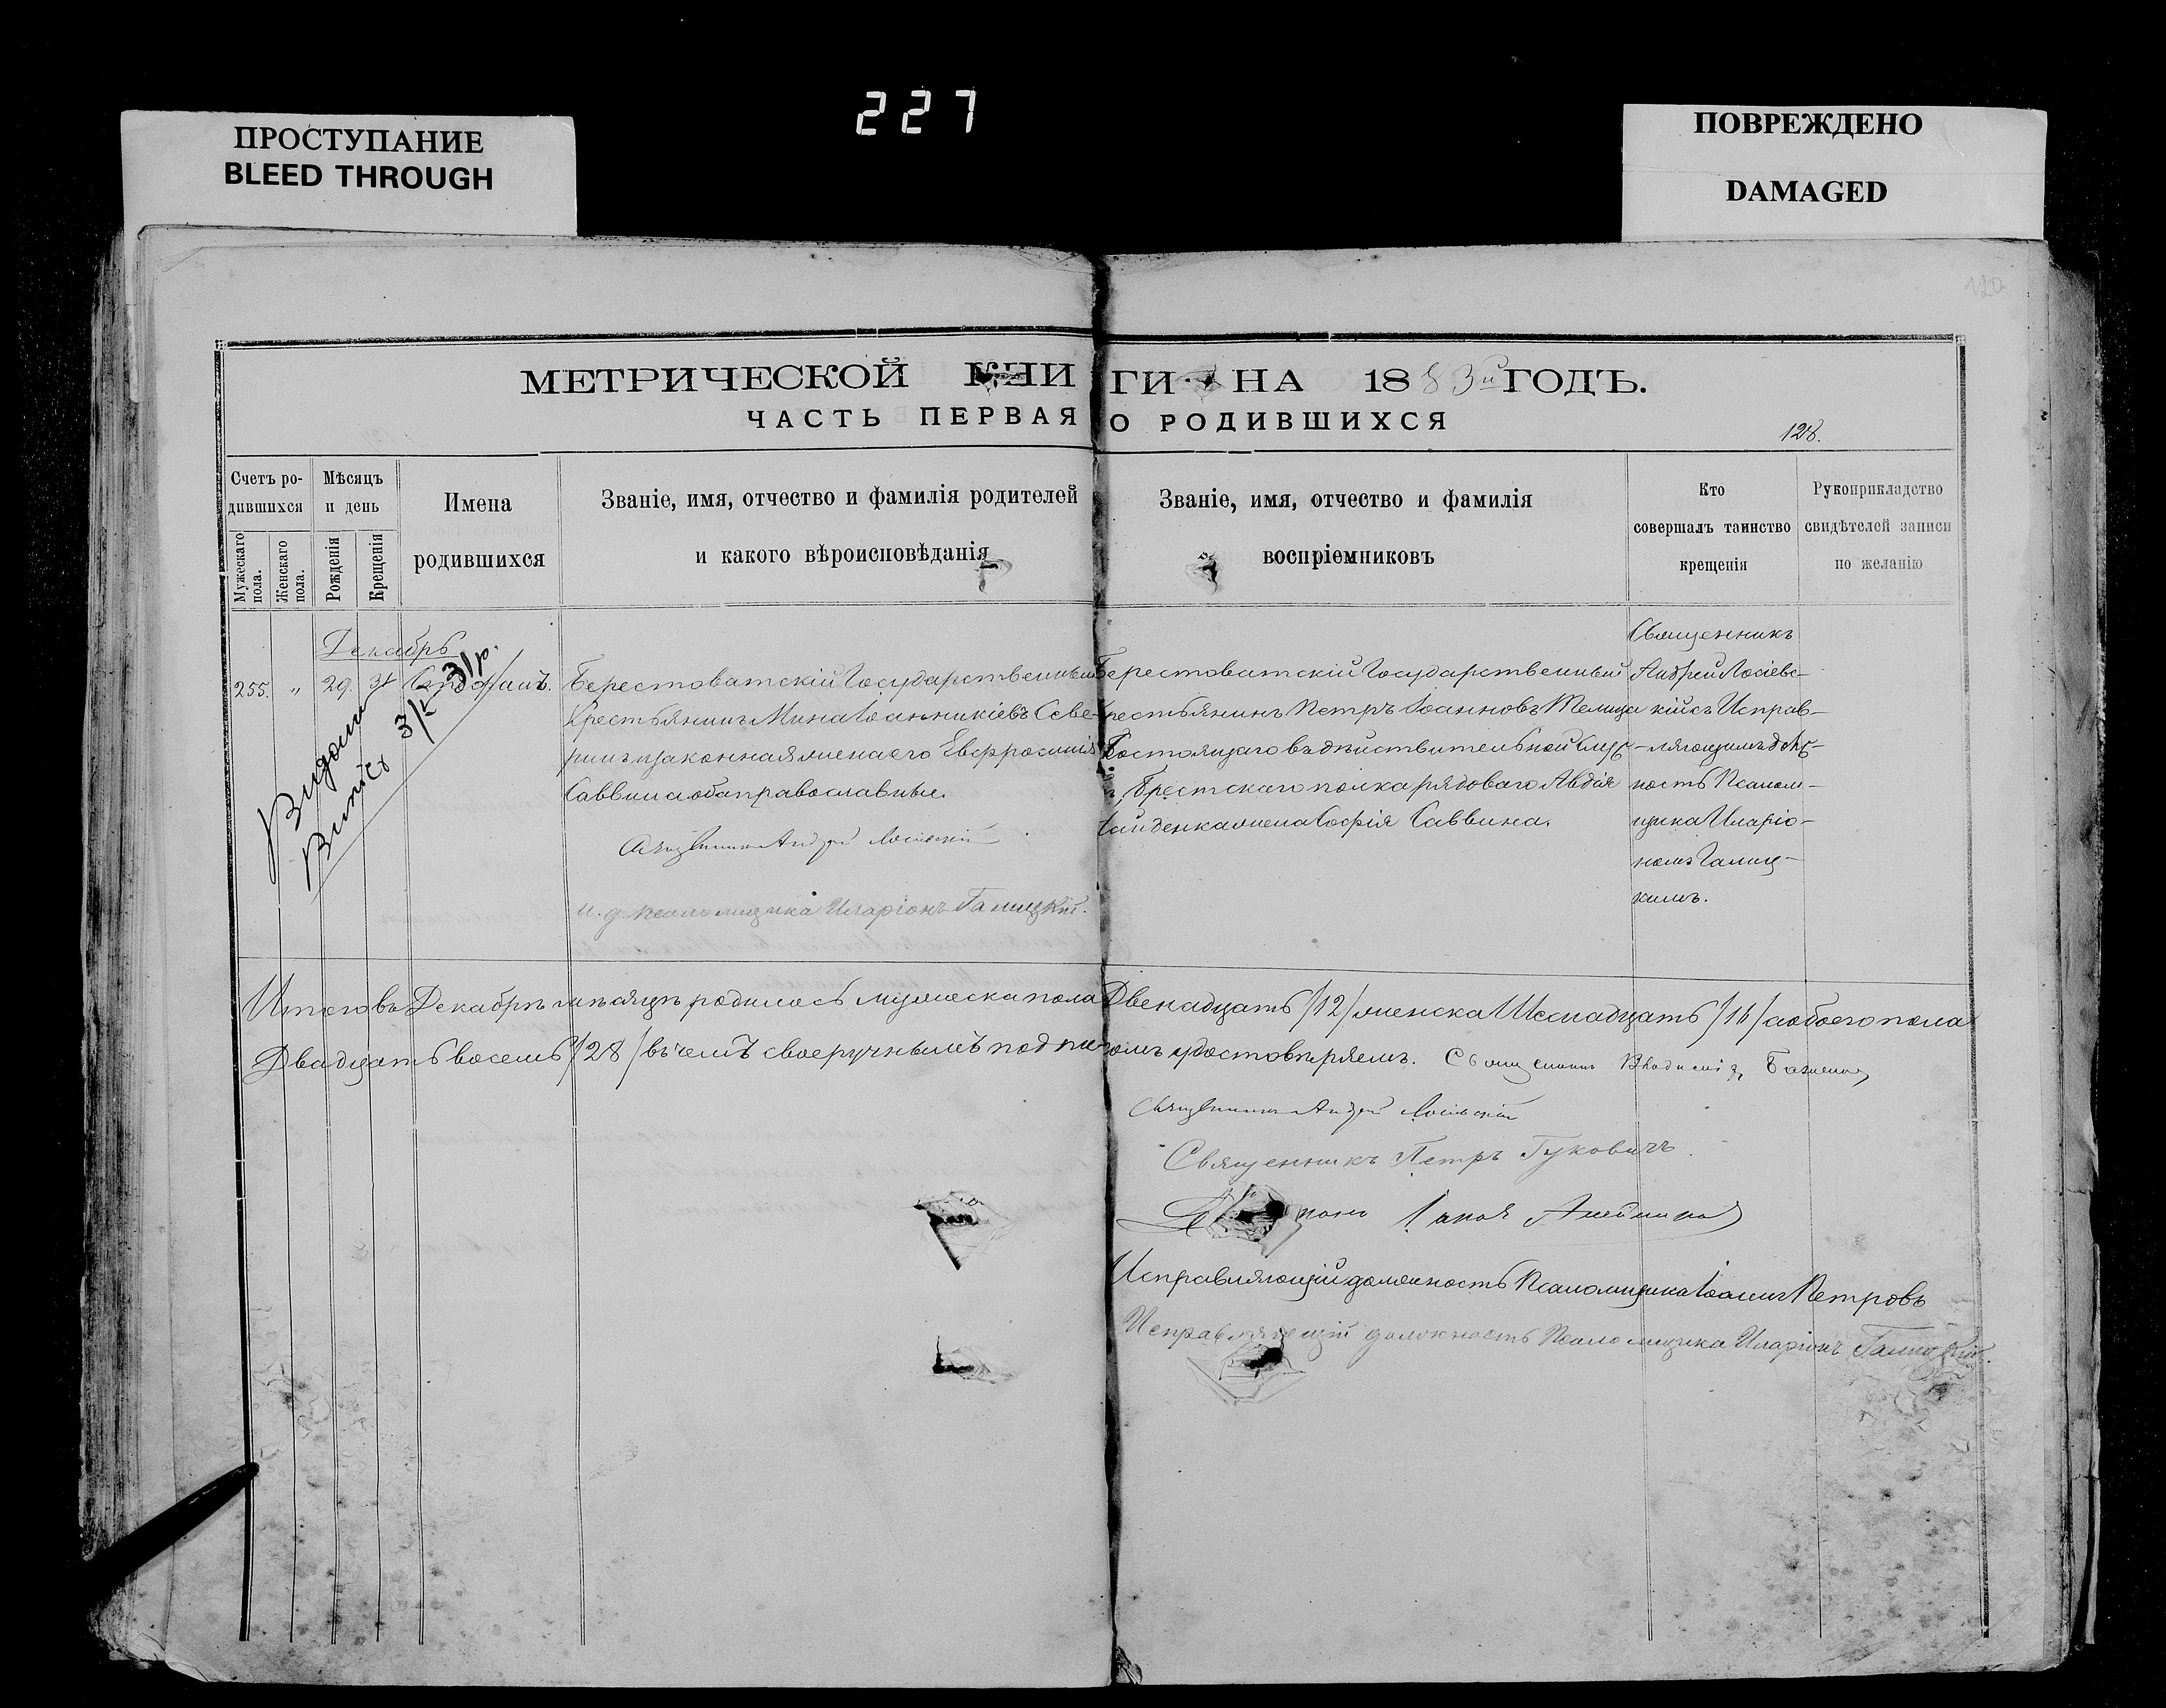 227
ПРОСТУПАНИЕ
BLEED THROUGH
ПОВРЕЖДЕНО
DAMAGED
МЕТРИЧЕСКОЙ КНИГИ НА 1883й ГОДЪ.
ЧАСТЬ ПЕРВАЯ О РОДИВШИХСЯ
128.
Счетъ ро-
дившихся
Мужескаго
пола.
Женскаго
пола.
Мѣсяцъ
и день
Рожденія
Крещенія
Имена
родившихся
Званіе, имя, отчество и фамилія родителей
и какого вѣроисповѣданія
Званіе, имя, отчество и фамилія
воспріемниковъ
Кто
совершалъ таинство
крещенія
Рукоприкладство
свидѣтелей записи
по желанію
Декабрь
255. " 29. 31
Стефанъ.
Берестоватскій Государственный
Крестьянинъ Мина Іоанникіевъ Севе-
ринъ и законная жена его Евфросинія
Саввина оба православные.
Священникъ Андрей Лосіевскій
и. д. псаломщика Иларіонъ Галицкій.
Берестоватскій Государственный
Крестьянинъ Петръ Іоанновъ Телица
Состоящаго въ дѣйствительной служ-
Брестскаго полка рядоваго Авдія
жена Софія Саввина.
Священникъ
Андрей Лосіевс-
кій съ Исправ-
ляющимъ долж-
ность Псалом-
щика Иларіо-
номъ Галиц-
кимъ.
Итого въ Декабрѣ мѣсяцѣ родилось мужеска пола Двенадцать /12/ женска Шеснадцать /16/ а обоего пола
Двадцать восемь /28/ въ чемъ своеручнымъ подписомъ удостовѣряемъ. Священникъ
Священникъ Андрей Лосіевскій
Священникъ Петръ Гуковичъ.
Исправляющій должность Псаломщика Іоаннъ Петровъ
Исправляющій должность Псаломщика Иларіонъ Галицкій.